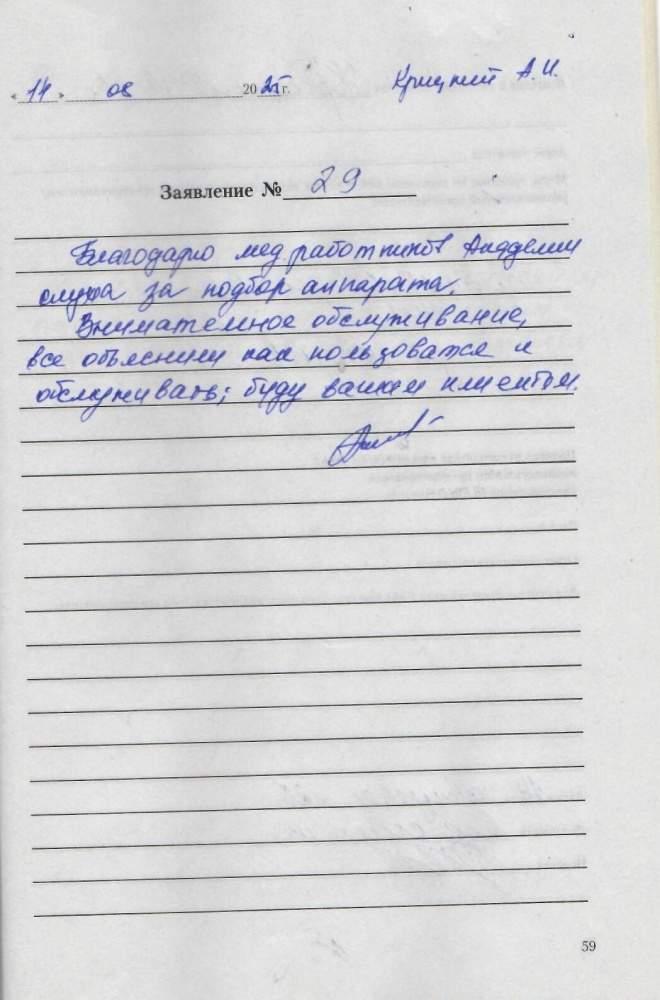 « 14 » 08 2025 г. Крицкий А.И.
Заявление № 29
Благодарю мед.работников Академии
слуха за подбор аппарата.
Внимательное обслуживание,
все объяснили как пользоватся и
обслуживать; буду вашим клиентом.
59